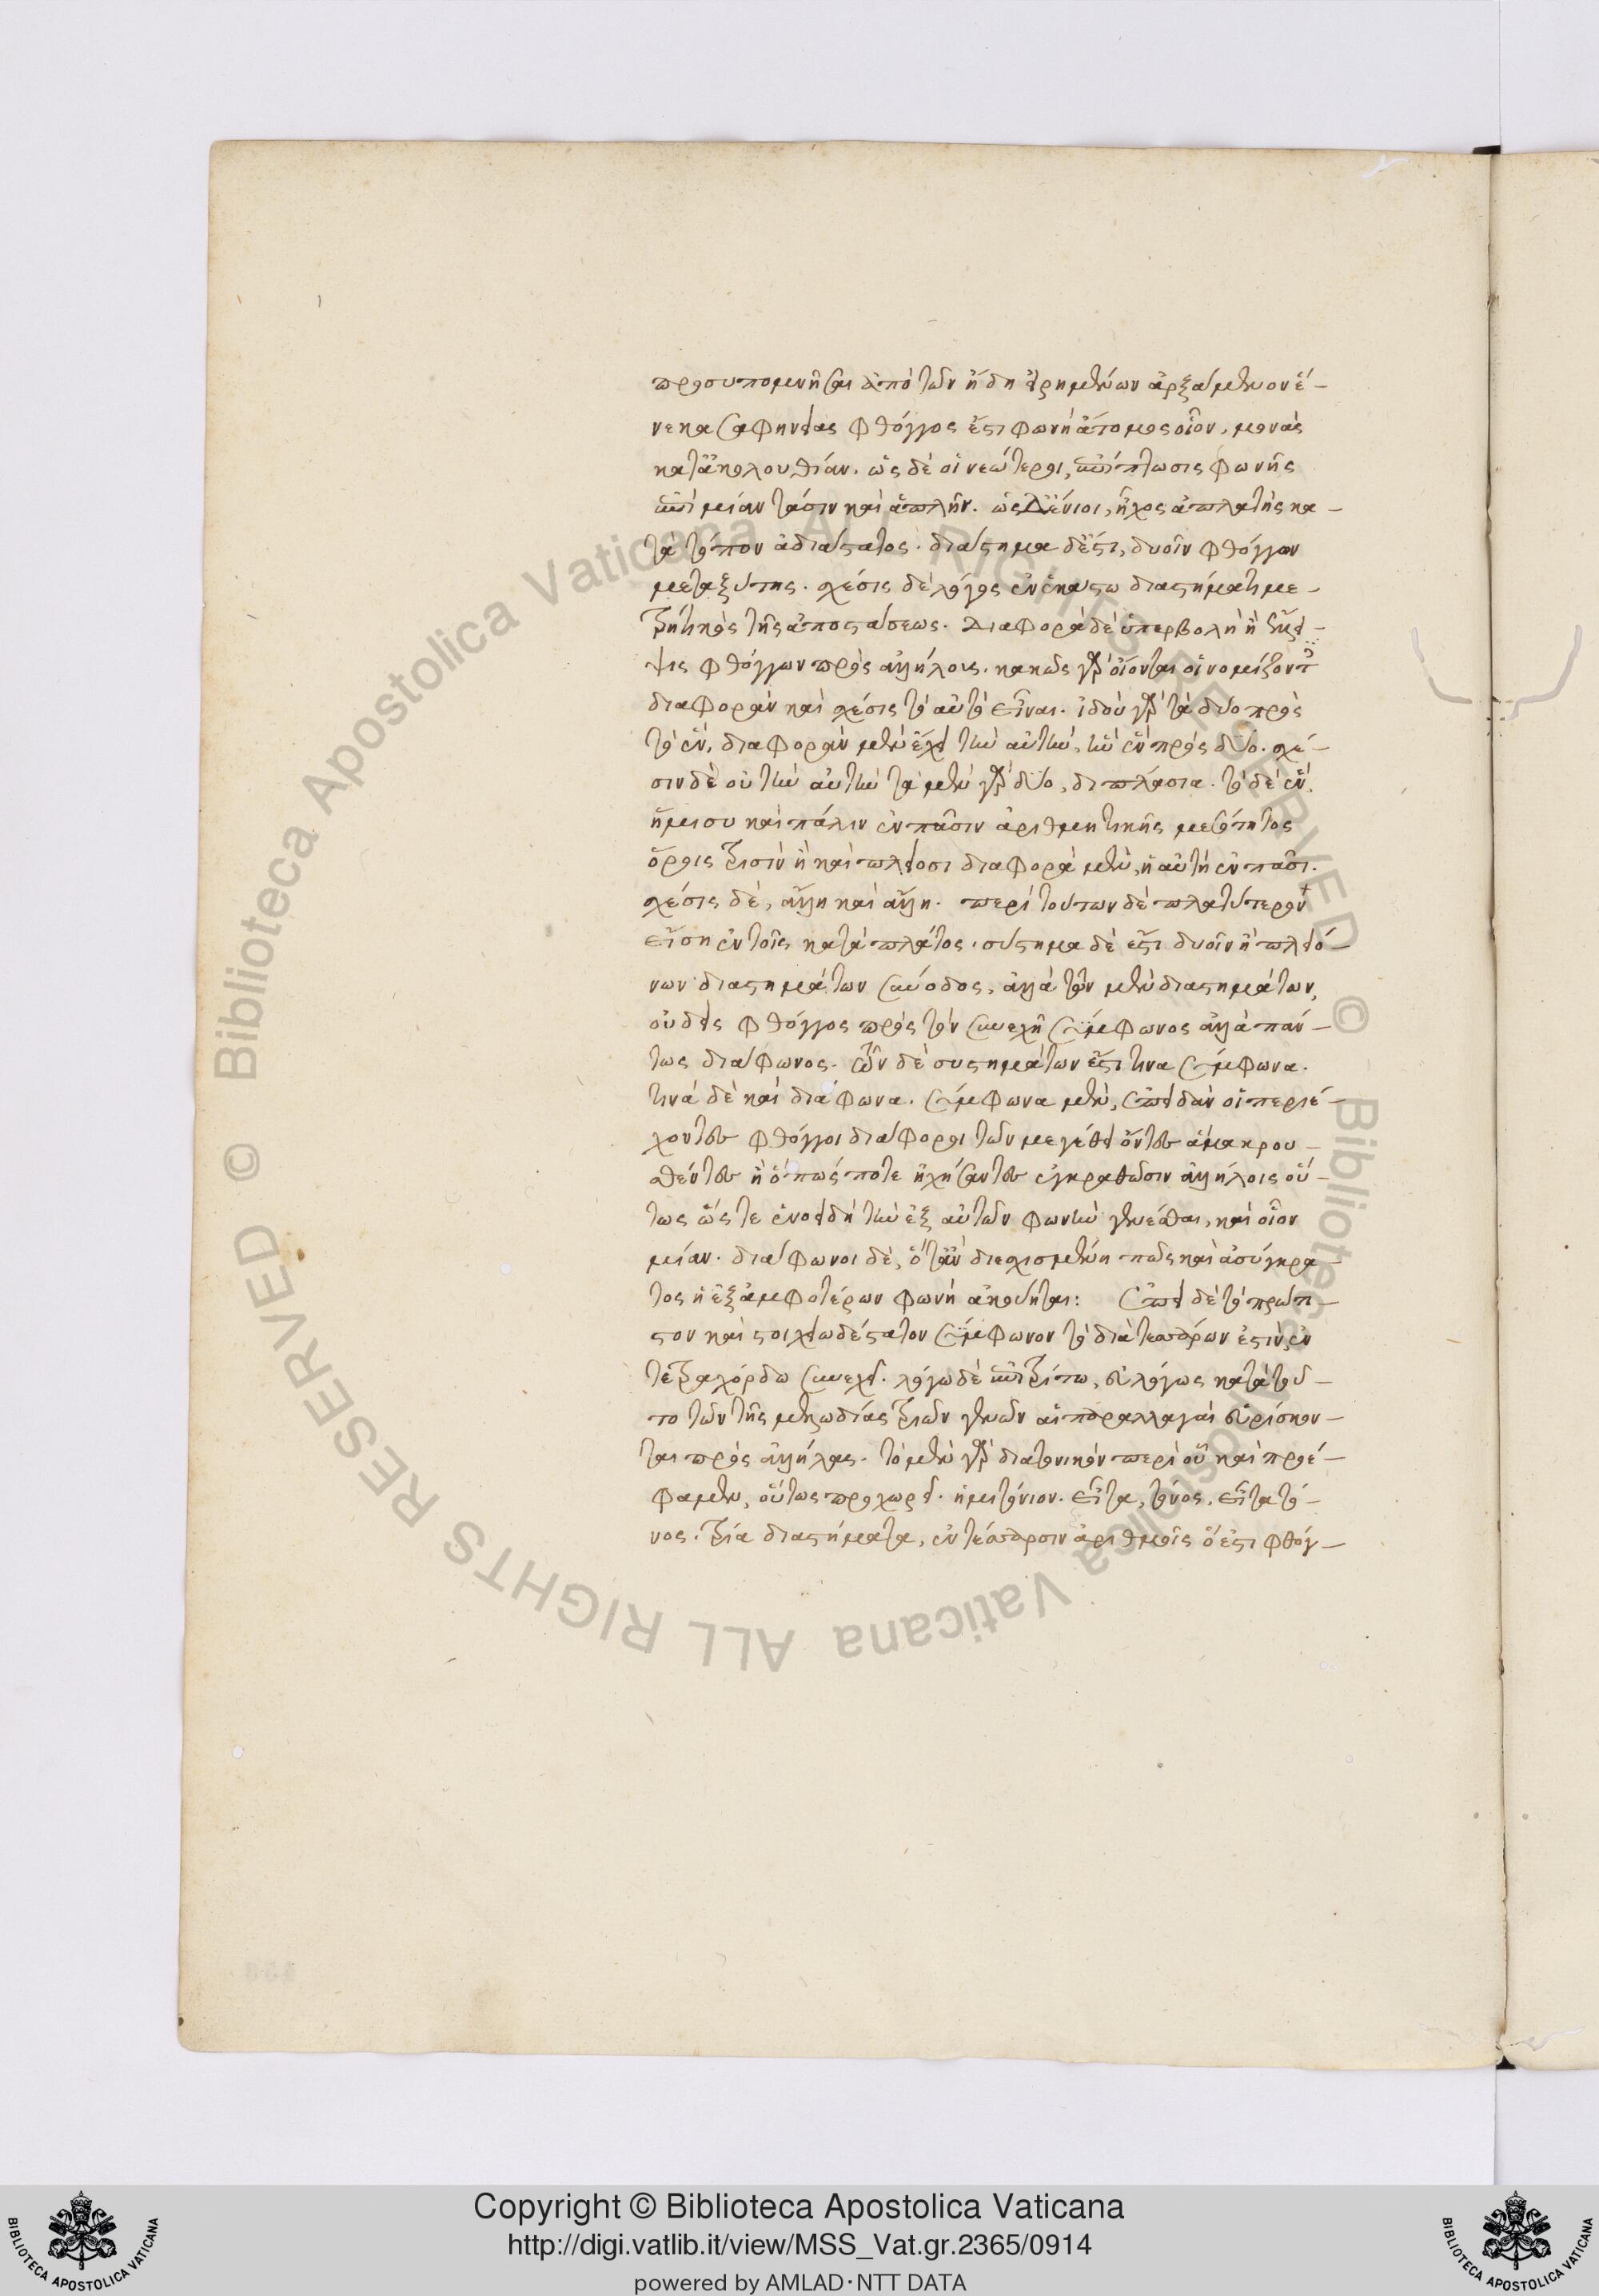 προσυπομνῆσαι ἀπὸ τῶν ἤδη εἰρημένων ἀρξάμενον ἕ-
νεκα σαφηνείας φθόγγος ἐστὶ φωνὴ ἄτομος οἷον, μονὰς
κατ' ἀκολουθίαν. ὡς δὲ οἱ νεώτεροι, ἐπίπτωσις φωνῆς
ἐπὶ μίαν τάσιν καὶ ἁπλῆν. ὡς δ' ἔνιοι, ἦχος ἀπλατὴς κα-
τὰ τόπον ἀδιάστατος. διάστημα δ' ἐστι, δυοῖν φθόγγων
μεταξύτης. σχέσις δὲ λόγος ἐν ἑκάστω διαστήματι με-
τρητικὸς τῆς ἀποστάσεως. Διαφορὰ δὲ ὑπερβολὴ ἢ ἔλλει-
ψις φθόγγων πρὸς ἀλλήλους. κακῶς γὰρ οἴονται οἱ νομίζοντες
διαφορὰν καὶ σχέσις τὸ αὐτὸ εἶναι. ἰδοὺ γὰρ τὰ δύο πρὸς
τὸ ἓν, διαφορὰν μὲν ἔχει τὴν αὐτὴν, τὴν ἓν πρὸς δύο. σχέ-
σιν δὲ οὐ τὴν αὐτὴν τὰ μὲν γὰρ δύο, διπλάσια. τὸ δὲ ἓν.
ἥμισυ καὶ πάλιν ἐν πᾶσιν ἀριθμητικῆς μεσότητος
ὅροις τρισὶν ἢ καὶ πλείοσι διαφορὰ μὲν, ἡ αὐτὴ ἐν πᾶσι.
σχέσις δὲ, ἄλλη καὶ ἄλλη. περὶ τούτων δὲ πλατύτερον
εἴση ἐν τοῖς κατὰ πλάτος. σύστημα δὲ ἐστι δυοῖν ἢ πλειό-
νων διαστημάτων σύνοδος, ἀλλὰ τῶν μὲν διαστημάτων,
οὐδεὶς φθόγγος πρὸς τὸν συνεχῆ σύμφωνος ἀλλὰ πάν-
τως διάφωνος. τῶν δὲ συστημάτων ἐστι τινα σύμφωνα.
τινὰ δὲ καὶ διάφωνα. σύμφωνα μὲν, ἐπειδὰν οἱ περιέ-
χοντες φθόγγοι διάφοροι τῶν μεγέθει ὄντες ἅμα κρου-
σθέντες ἢ ὁπώς ποτε ἠχήσαντες ἐγκραθῶσιν ἀλλήλοις οὕ-
τως ὥς τε ἑνοειδῆ τὴν ἐξ αὐτῶν φωνὴν γενέσθαι, καὶ οἷον
μίαν. διάφωνοι δὲ, ὅταν διεσχισμένη πως καὶ ἀσύγκρα
τος ἡ ἐξ ἀμφοτέρων φωνὴ ἀκούηται: Ἐπεὶ δὲ τὸ πρώτι-
στον καὶ στοιχειωδέστατον σύμφωνον τὸ διὰ τεσσάρων ἐστιν, ἐν
τετραχόρδω συνεχεῖ. λόγω δὲ ἐπιτρίτω, εὐλόγως κατὰ τοῦ-
το τῶν τῆς μελωδίας τριῶν γενῶν αἱ παραλλαγαὶ εὑρίσκον-
ται πρὸς ἀλλήλας. τὸ μὲν γὰρ διατονικὸν περὶ οὗ καὶ προέ-
φαμεν, οὕτως προχωρεῖ. ἡμιτόνιον. εἶτα, τόνος. εἶτα τό-
νος. τρία διαστήματα, ἐν τέσσαρσιν ἀριθμοῖς ὅ ἐστι φθόγ-
Copyright © Biblioteca Apostolica Vaticana
http://digi.vatlib.it/view/MSS_Vat.gr.2365/0914
powered by AMLAD·NTT DATA
BIBLIOTECA APOSTOLICA VATICANA
BIBLIOTECA APOSTOLICA VATICANA
© Biblioteca Apostolica Vaticana ALL RIGHTS RESERVED
© Biblioteca Apostolica Vaticana ALL RIGHTS RESERVED